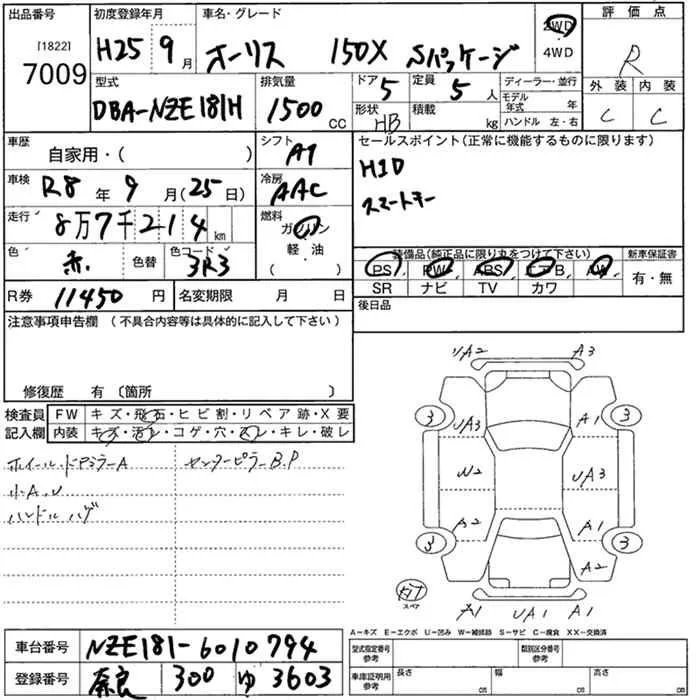 出品番号 初度登録年月 車名・グレード 2WD 評価点
[1822] 7009 H25年 9月 オーリス 150X Sパッケージ 4WD R
型式 排気量 ドア 5 定員 5人 ディーラー・並行 外装 内装
DBA-NZE181H 1500 CC 形状 HB 積載 kg モデル年式 年 C C
ハンドル 左・右
車歴 自家用・( ) シフト AT セールスポイント(正常に機能するものに限ります)
車検 R8年 9月(25日) 冷房 AAC HID
走行 8万7千214km 燃料 ガソリン スマートキー
軽・油
( )
色 赤 色替 色コード 3R3 装備品(純正品に限り丸をつけて下さい) 新車保証書
PS PW ABS エアB AW 有・無
R券 11450円 名変期限 月 日 SR ナビ TV カワ
注意事項申告欄 (不具合内容等は具体的に記入して下さい) 後日品
修復歴 有 〔箇所 〕
検査員 FW キズ・飛石・ヒビ割・リペア跡・X要
記入欄 内装 キズ・汚レ・コゲ・穴・スレ・キレ・破レ
ホイール・ドアミラーA センターピラーB.P
小A,U
ハンドルハゲ
UA2 A3
3 3
UA3 A1
W2 UA3
A2 A1
3 3
A2
スペア
A1 UA1 A1
A-キズ E-エクボ U-凹み W-補修跡 S-サビ C-腐食 XX-交換済
車台番号 NZE181-6010794 型式指定番号 参考 類別区分番号 参考
登録番号 奈良 300 ゆ 3603 車庫証明用 参考 長さ cm 幅 cm 高さ cm